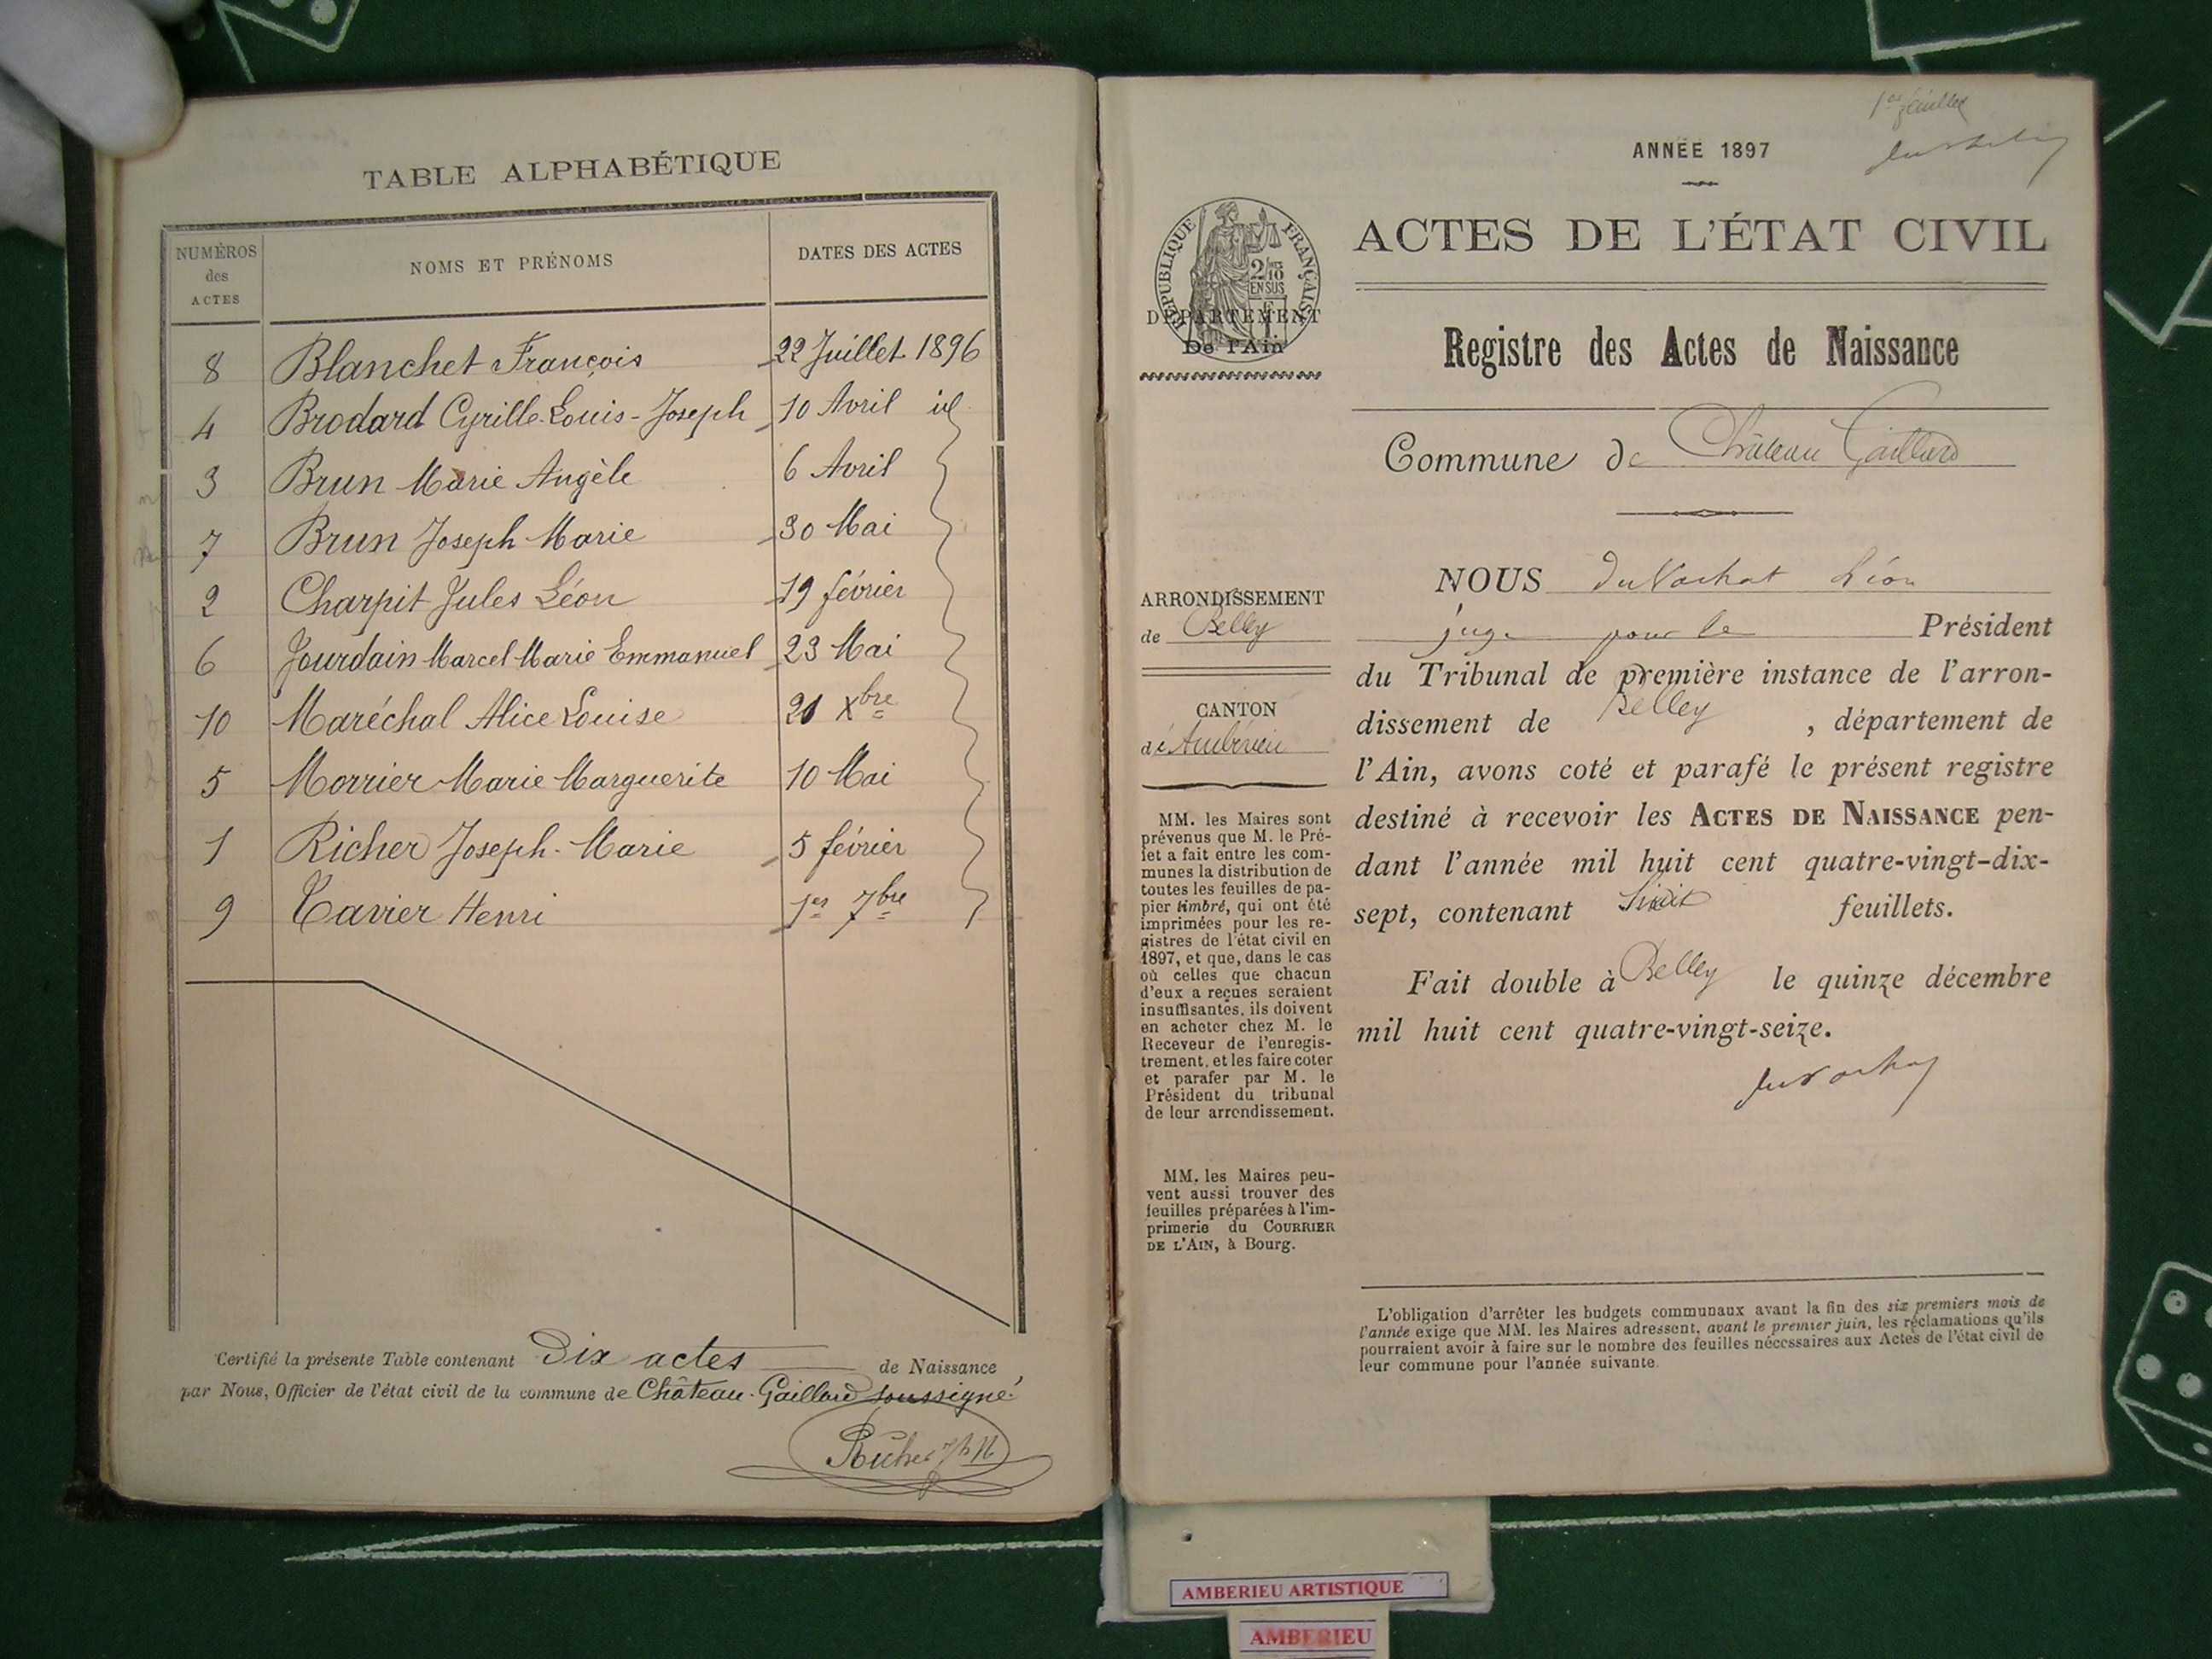 TABLE ALPHABÉTIQUE
NUMÉROS des ACTES
NOMS ET PRÉNOMS
DATES DES ACTES
8 Blanchet François 22 Juillet 1896
4 Brodard Cyrille-Louis-Joseph 10 Avril id
3 Brun Marie Angèle 6 Avril
7 Brun Joseph Marie 30 Mai
2 Charpit Jules Léon 19 février
6 Jourdain Marcel Marie Emmanuel 23 Mai
10 Maréchal Alice Louise 21 Xbre
5 Morrier Marie Marguerite 10 Mai
1 Richer Joseph-Marie 5 février
9 Tavier Henri 1er 7bre
Certifié la présente Table contenant Dix actes de Naissance
par Nous, Officier de l'état civil de la commune de Château-Gaillard soussigné
Richer
1er feuillet
ANNÉE 1897
ACTES DE L'ÉTAT CIVIL
RÉPUBLIQUE FRANÇAISE
2/10
EN SUS
DÉPARTEMENT
De l'Ain
Registre des Actes de Naissance
Commune de Château Gaillard
ARRONDISSEMENT
de Belley
CANTON
de Ambérieu
MM. les Maires sont
prévenus que M. le Pré-
fet a fait entre les com-
munes la distribution de
toutes les feuilles de pa-
pier timbré, qui ont été
imprimées pour les re-
gistres de l'état civil en
1897, et que, dans le cas
où celles que chacun
d'eux a reçues seraient
insuffisantes, ils doivent
en acheter chez M. le
Receveur de l'enregis-
trement, et les faire coter
et parafer par M. le
Président du tribunal
de leur arrondissement.
MM. les Maires peu-
vent aussi trouver des
feuilles préparées à l'im-
primerie du COURRIER
DE L'AIN, à Bourg.
NOUS Du Vachat Léon
juge pour le Président
du Tribunal de première instance de l'arron-
dissement de Belley, département de
l'Ain, avons coté et parafé le présent registre
destiné à recevoir les ACTES DE NAISSANCE pen-
dant l'année mil huit cent quatre-vingt-dix-
sept, contenant feuillets.
Fait double à Belley le quinze décembre
mil huit cent quatre-vingt-seize.
L'obligation d'arrêter les budgets communaux avant la fin des six premiers mois de
l'année exige que MM. les Maires adressent, avant le premier juin, les réclamations qu'ils
pourraient avoir à faire sur le nombre des feuilles nécessaires aux Actes de l'état civil de
leur commune pour l'année suivante.
AMBERIEU ARTISTIQUE
AMBERIEU